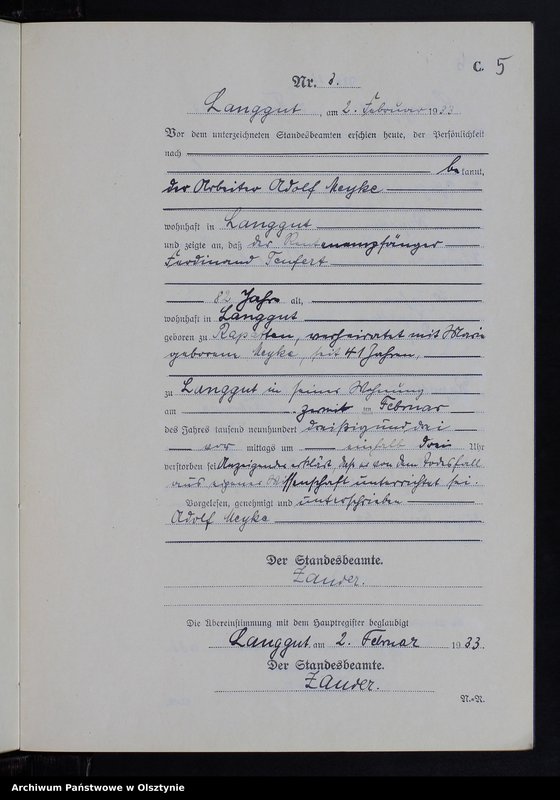 C. 5
Nr. 3.
Langgut, am 2. Februar 1933
Vor dem unterzeichneten Standesbeamten erschien heute, der Persönlichkeit
nach
bekannt,
der Arbeiter Adolf Meyke
wohnhaft in Langgut
und zeigte an, daß der Rentenempfänger
Ferdinand Teufert
82 Jahre alt,
wohnhaft in Langgut
geboren zu verheiratet mit Marie
geborene Meyke, seit 41 Jahren,
zu Langgut in seiner Wohnung
am zweiten Februar
des Jahres tausend neunhundert dreißig und drei
vor mittags um einhalb drei Uhr
verstorben sei. Anzeigender erklärt, daß er von dem Todesfall
aus eigener Wissenschaft unterrichtet sei.
Vorgelesen, genehmigt und unterschrieben
Adolf Meyke
Der Standesbeamte.
Zander.
Die Übereinstimmung mit dem Hauptregister beglaubigt
Langgut am 2. Februar 1933.
Der Standesbeamte.
Zander.
Archiwum Państwowe w Olsztynie